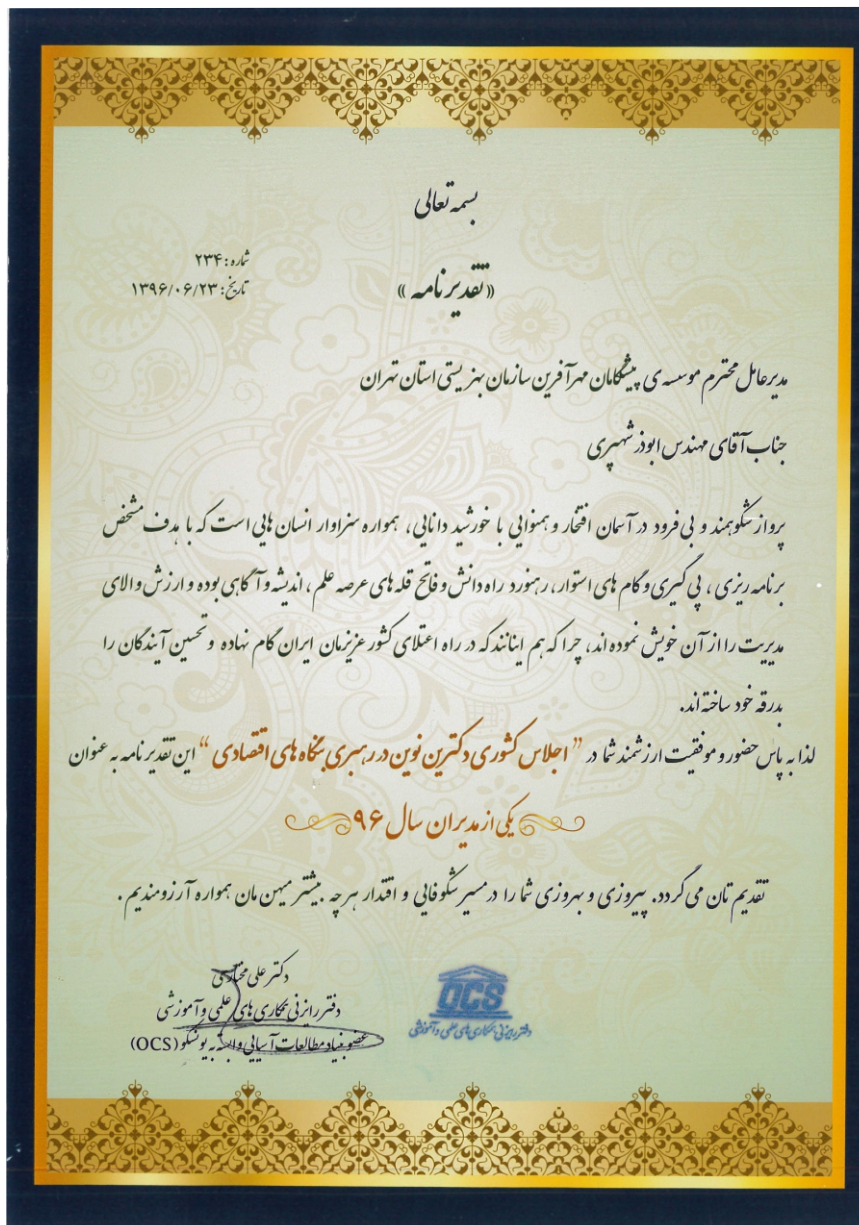 بسمه تعالی
شماره: ۲۳۴
تاریخ: ۱۳۹۶/۰۶/۲۳
«تقدیر نامه»
مدیرعامل محترم موسسه ی پیشگامان مهرآفرین سازمان بهزیستی استان تهران
جناب آقای مهندس ابوذر شهپری
پرواز شکوهمند و بی فرود در آسمان افتخار و همنوایی با خورشید دانایی، همواره سزاوار انسان هایی است که با هدف مشخص
برنامه ریزی، پی گیری و گام های استوار، رهنورد راه دانش و فاتح قله های عرصه علم، اندیشه و آگاهی بوده و ارزش والای
مدیریت را از آن خویش نموده اند، چرا که هم اینانند که در راه اعتلای کشور عزیزمان ایران گام نهاده و تحسین آیندگان را
بدرقه خود ساخته اند.
لذا به پاس حضور و موفقیت ارزشمند شما در " اجلاس کشوری دکترین نوین در رهبری بنگاه های اقتصادی " این تقدیر نامه به عنوان
یکی از مدیران سال ۹۶
تقدیم تان می گردد. پیروزی و بهروزی شما را در مسیر شکوفایی و اقتدار هرچه بیشتر میهن مان همواره آرزومندیم.
دکتر علی
دفتر رایزنی همکاری های علمی و آموزشی
عضو بنیاد مطالعات آسیایی وابسته به یونسکو (OCS)
OCS
دفتر رایزنی همکاری های علمی و آموزشی